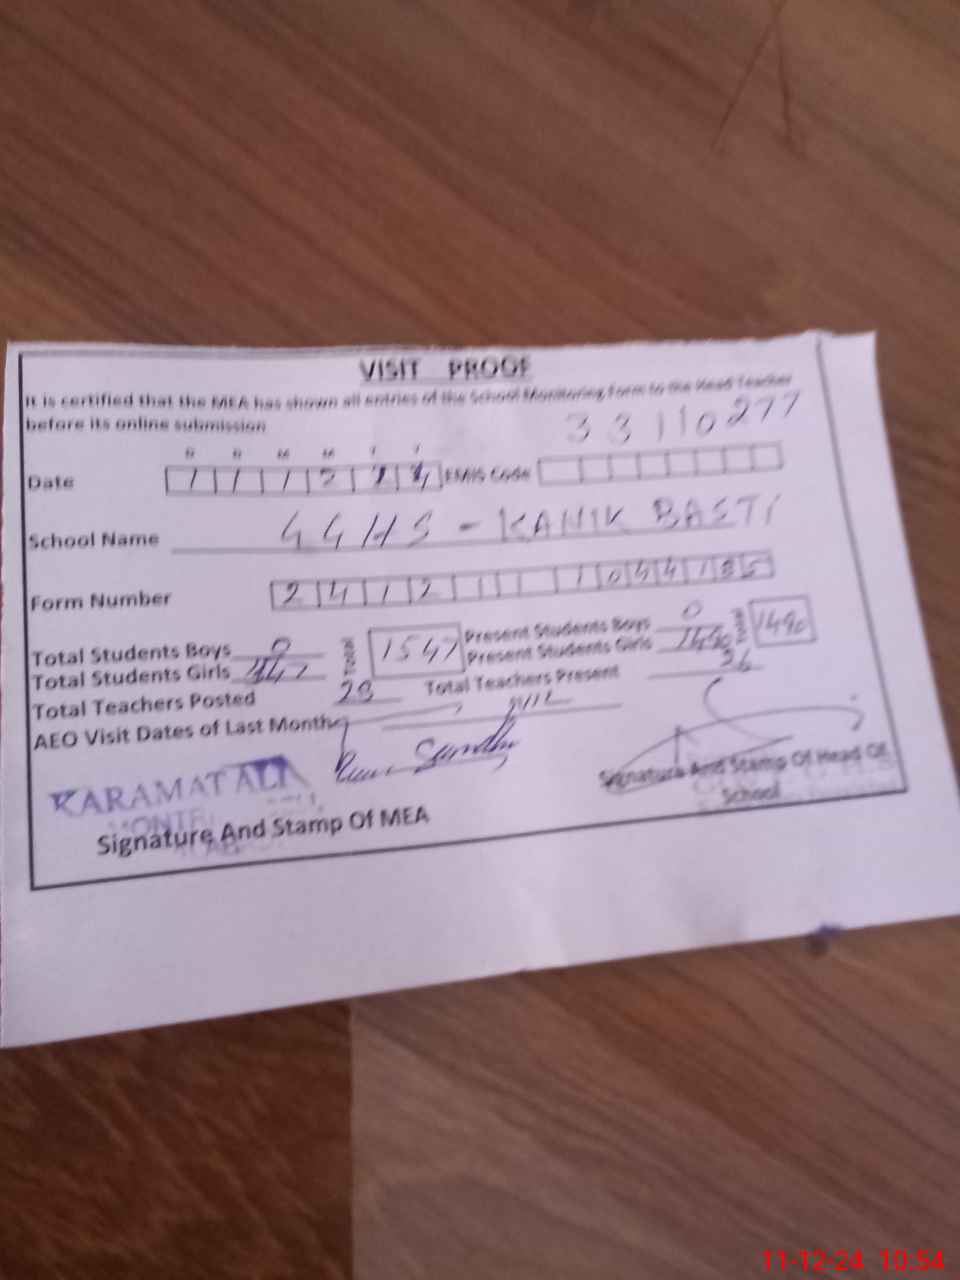 VISIT PROOF
It is certified that the MEA has shown all entries of the School Monitoring Form to the Head Teacher
before its online submission
33110277
D D M M Y Y
Date 111224 EMIS Code
School Name GGHS - KANIK BASTI
Form Number 2412
Total Students Boys 0 Total 1547 Present Students Boys 0 Total 1490
Total Students Girls Present Students Girls 1490
Total Teachers Posted 28 Total Teachers Present 26
AEO Visit Dates of Last Month
KARAMAT ALI
Signature And Stamp Of MEA
Signature And Stamp Of Head Of
School
11-12-24 10:54